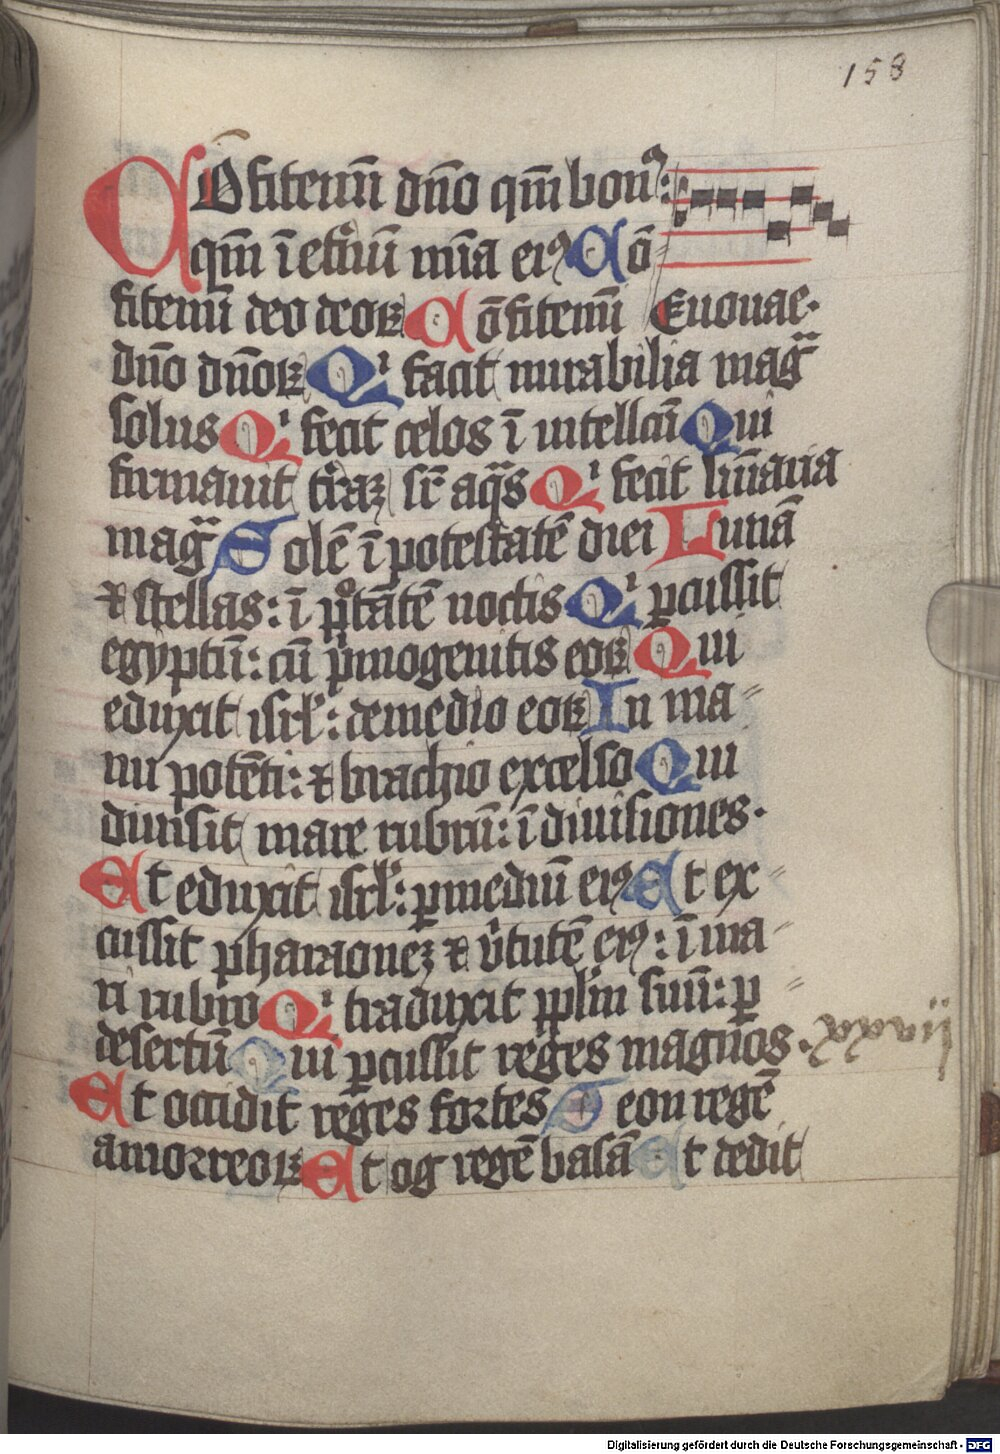 158
COnfitemĩ dño qm̃ bonꝰ:
qm̃ ĩ et̾nũ mĩa eiꝰ Cõ
fitemĩ deo deoꝝ Cõfitemĩ Euouae.
dño dñoꝝ Qͥ facit mirabilia magͣ
solus Qͥ fecit celos ĩ intellcũ Qui
firmauit t̾raꝫ sr̃ aqͣs Qͥ fecit lũĩaria
magͣ Solẽ ĩ potestatẽ diei Lunã
⁊ stellas: ĩ ptãtẽ noctis Qͥ ꝑcussit
egyptũ: cũ pͥmogenitis eoꝝ Qui
eduxit isrl̾: de medio eoꝝ In ma⸗
nu potẽti: ⁊ brachio excelso Qui
diuisit mare rubrũ: ĩ diuisiones.
Et eduxit isrl̾: ꝑ mediũ eiꝰ Et ex⸗
cussit pharaoneꝫ ⁊ v̾tutẽ eiꝰ: ĩ ma⸗
ri rubro Qͥ traduxit ppl̾m suũ: ꝑ⸗
desertũ Qui ꝑcussit reges magnos.
Et occidit reges fortes Seon regẽ
amorreoꝝ Et og regẽ basã Et dedit
Digitalisierung gefördert durch die Deutsche Forschungsgemeinschaft - DFG